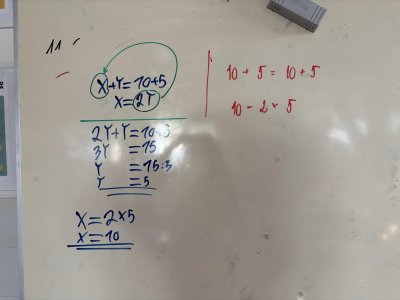 11
X+Y=10+5
X=2Y
2Y+Y=10+5
3Y =15
Y =15:3
Y =5
X=2×5
X=10
10 + 5 = 10 + 5
10 = 2 × 5